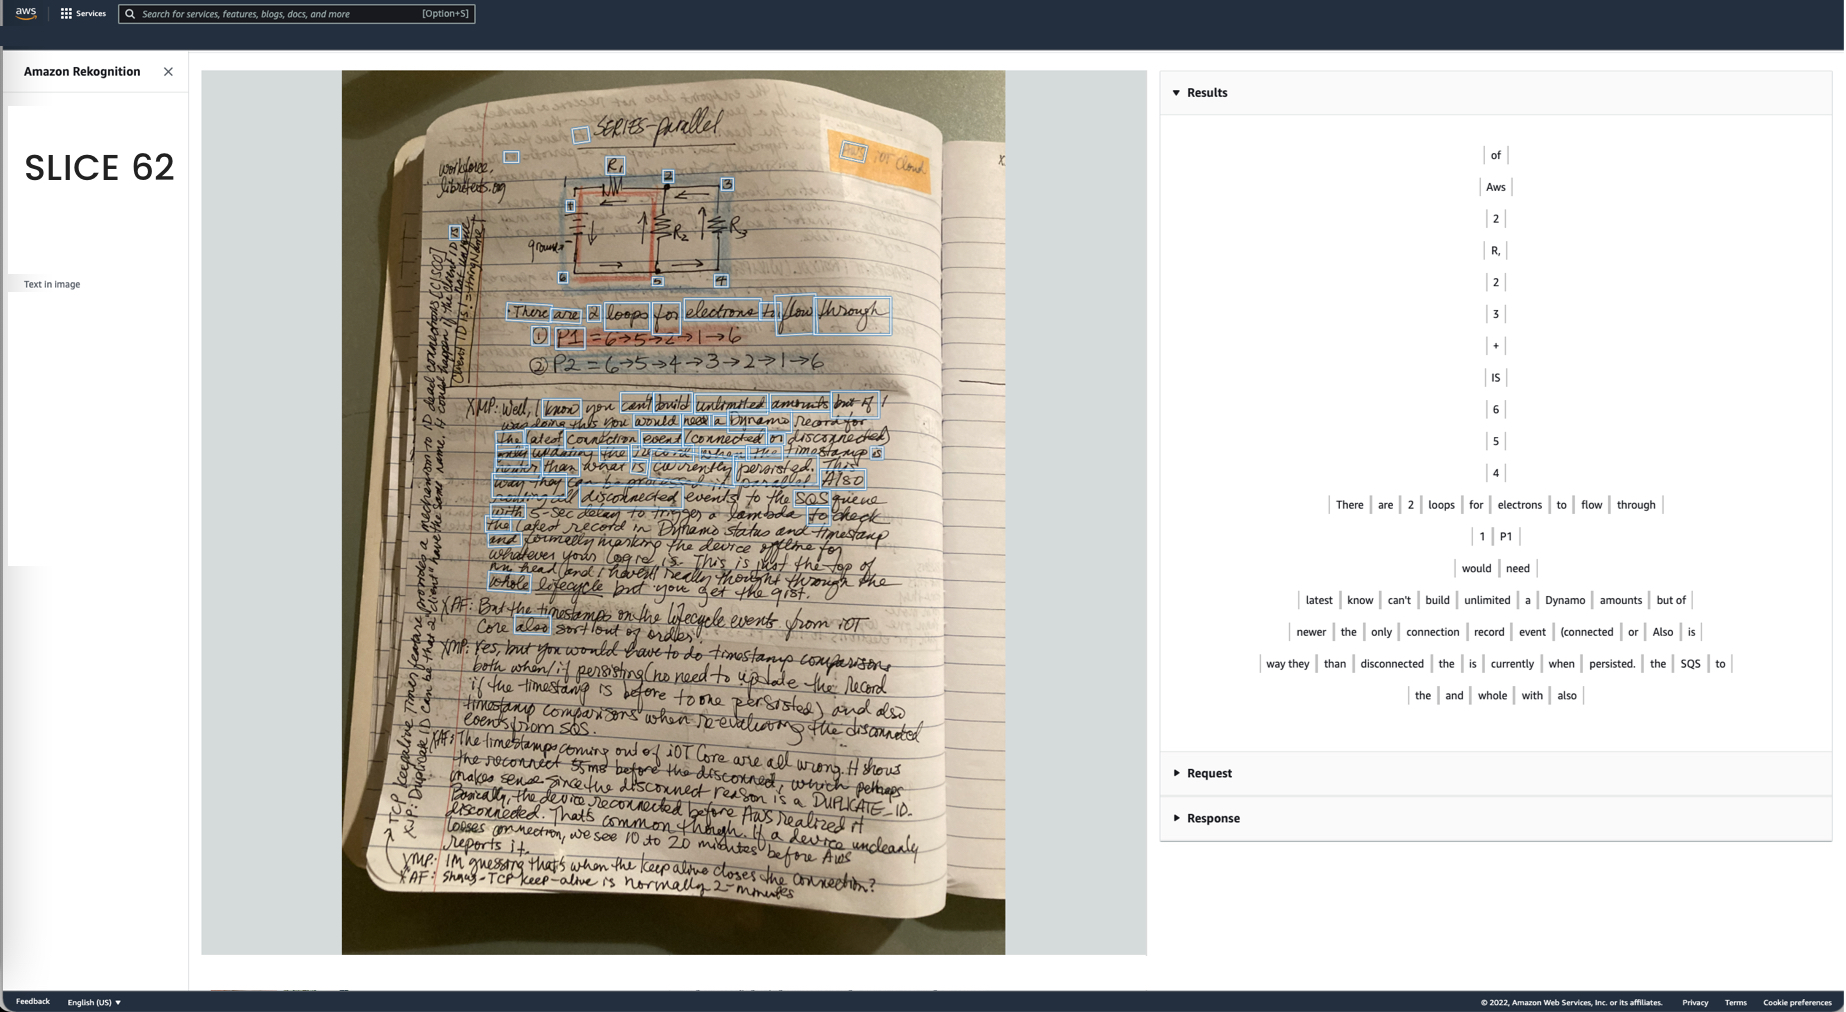 aws
Services
Search for services, features, blogs, docs, and more
[Option+S]
Amazon Rekognition
SLICE 62
Text in image
SERIES-parallel
iOT Cloud
workforce.
libretexts.org
R1
2
3
1
+
ground
R2
R3
6
5
4
There are 2 loops for electrons to flow through
① P1 = 6→5→2→1→6
② P2 = 6→5→4→3→2→1→6
XMP: Well, I know you can't build unlimited amounts but if I
was doing this you would need a Dynamo record for
the latest connection event (connected or disconnected)
only updating the record when the timestamp is
newer than what is currently persisted. This
way they can be processed in parallel. Also
sending all disconnected events to the SQS queue
with 5-sec delay to trigger a lambda to check
the latest record in Dynamo status and timestamp
and formally marking the device offline for
whatever your logic is. This is just the top of
my head and i haven't really thought through the
whole lifecycle but you get the gist.
XAF: But the timestamps on the lifecycle events from iOT
Core also sort out of order.
XMP: Yes, but you would have to do timestamp comparisons
both when/if persisting (no need to update the record
if the timestamp is before to one persisted) and also
timestamp comparisons when re-evaluating the disconnected
events from SQS.
XAF: The timestamps coming out of iOT Core are all wrong. It shows
the reconnect 55ms before the disconnect, which perhaps
makes sense since the disconnect reason is a DUPLICATE_ID.
Basically, the device reconnected before AWS realized it
disconnected. That's common though. If a device uncleanly
looses connection, we see 10 to 20 minutes before AWS
reports it.
XMP: IM guessing that's when the keep alive closes the connection?
XAF: TCP keep-alive is normally 2-minutes
TCP Keepalive Timer feature provides a mechanism to ID dead connections [CISCO]
XJP: Duplicate ID can be that 2 "client" have the same name. It could happen if the client ID is
not unique
Client ID is != thingName
Results
of
Aws
2
R,
2
3
+
IS
6
5
4
There are 2 loops for electrons to flow through
1 P1
would need
latest know can't build unlimited a Dynamo amounts but of
newer the only connection record event (connected or Also is
way they than disconnected the is currently when persisted. the SQS to
the and whole with also
Request
Response
Feedback
English (US)
© 2022, Amazon Web Services, Inc. or its affiliates.
Privacy
Terms
Cookie preferences